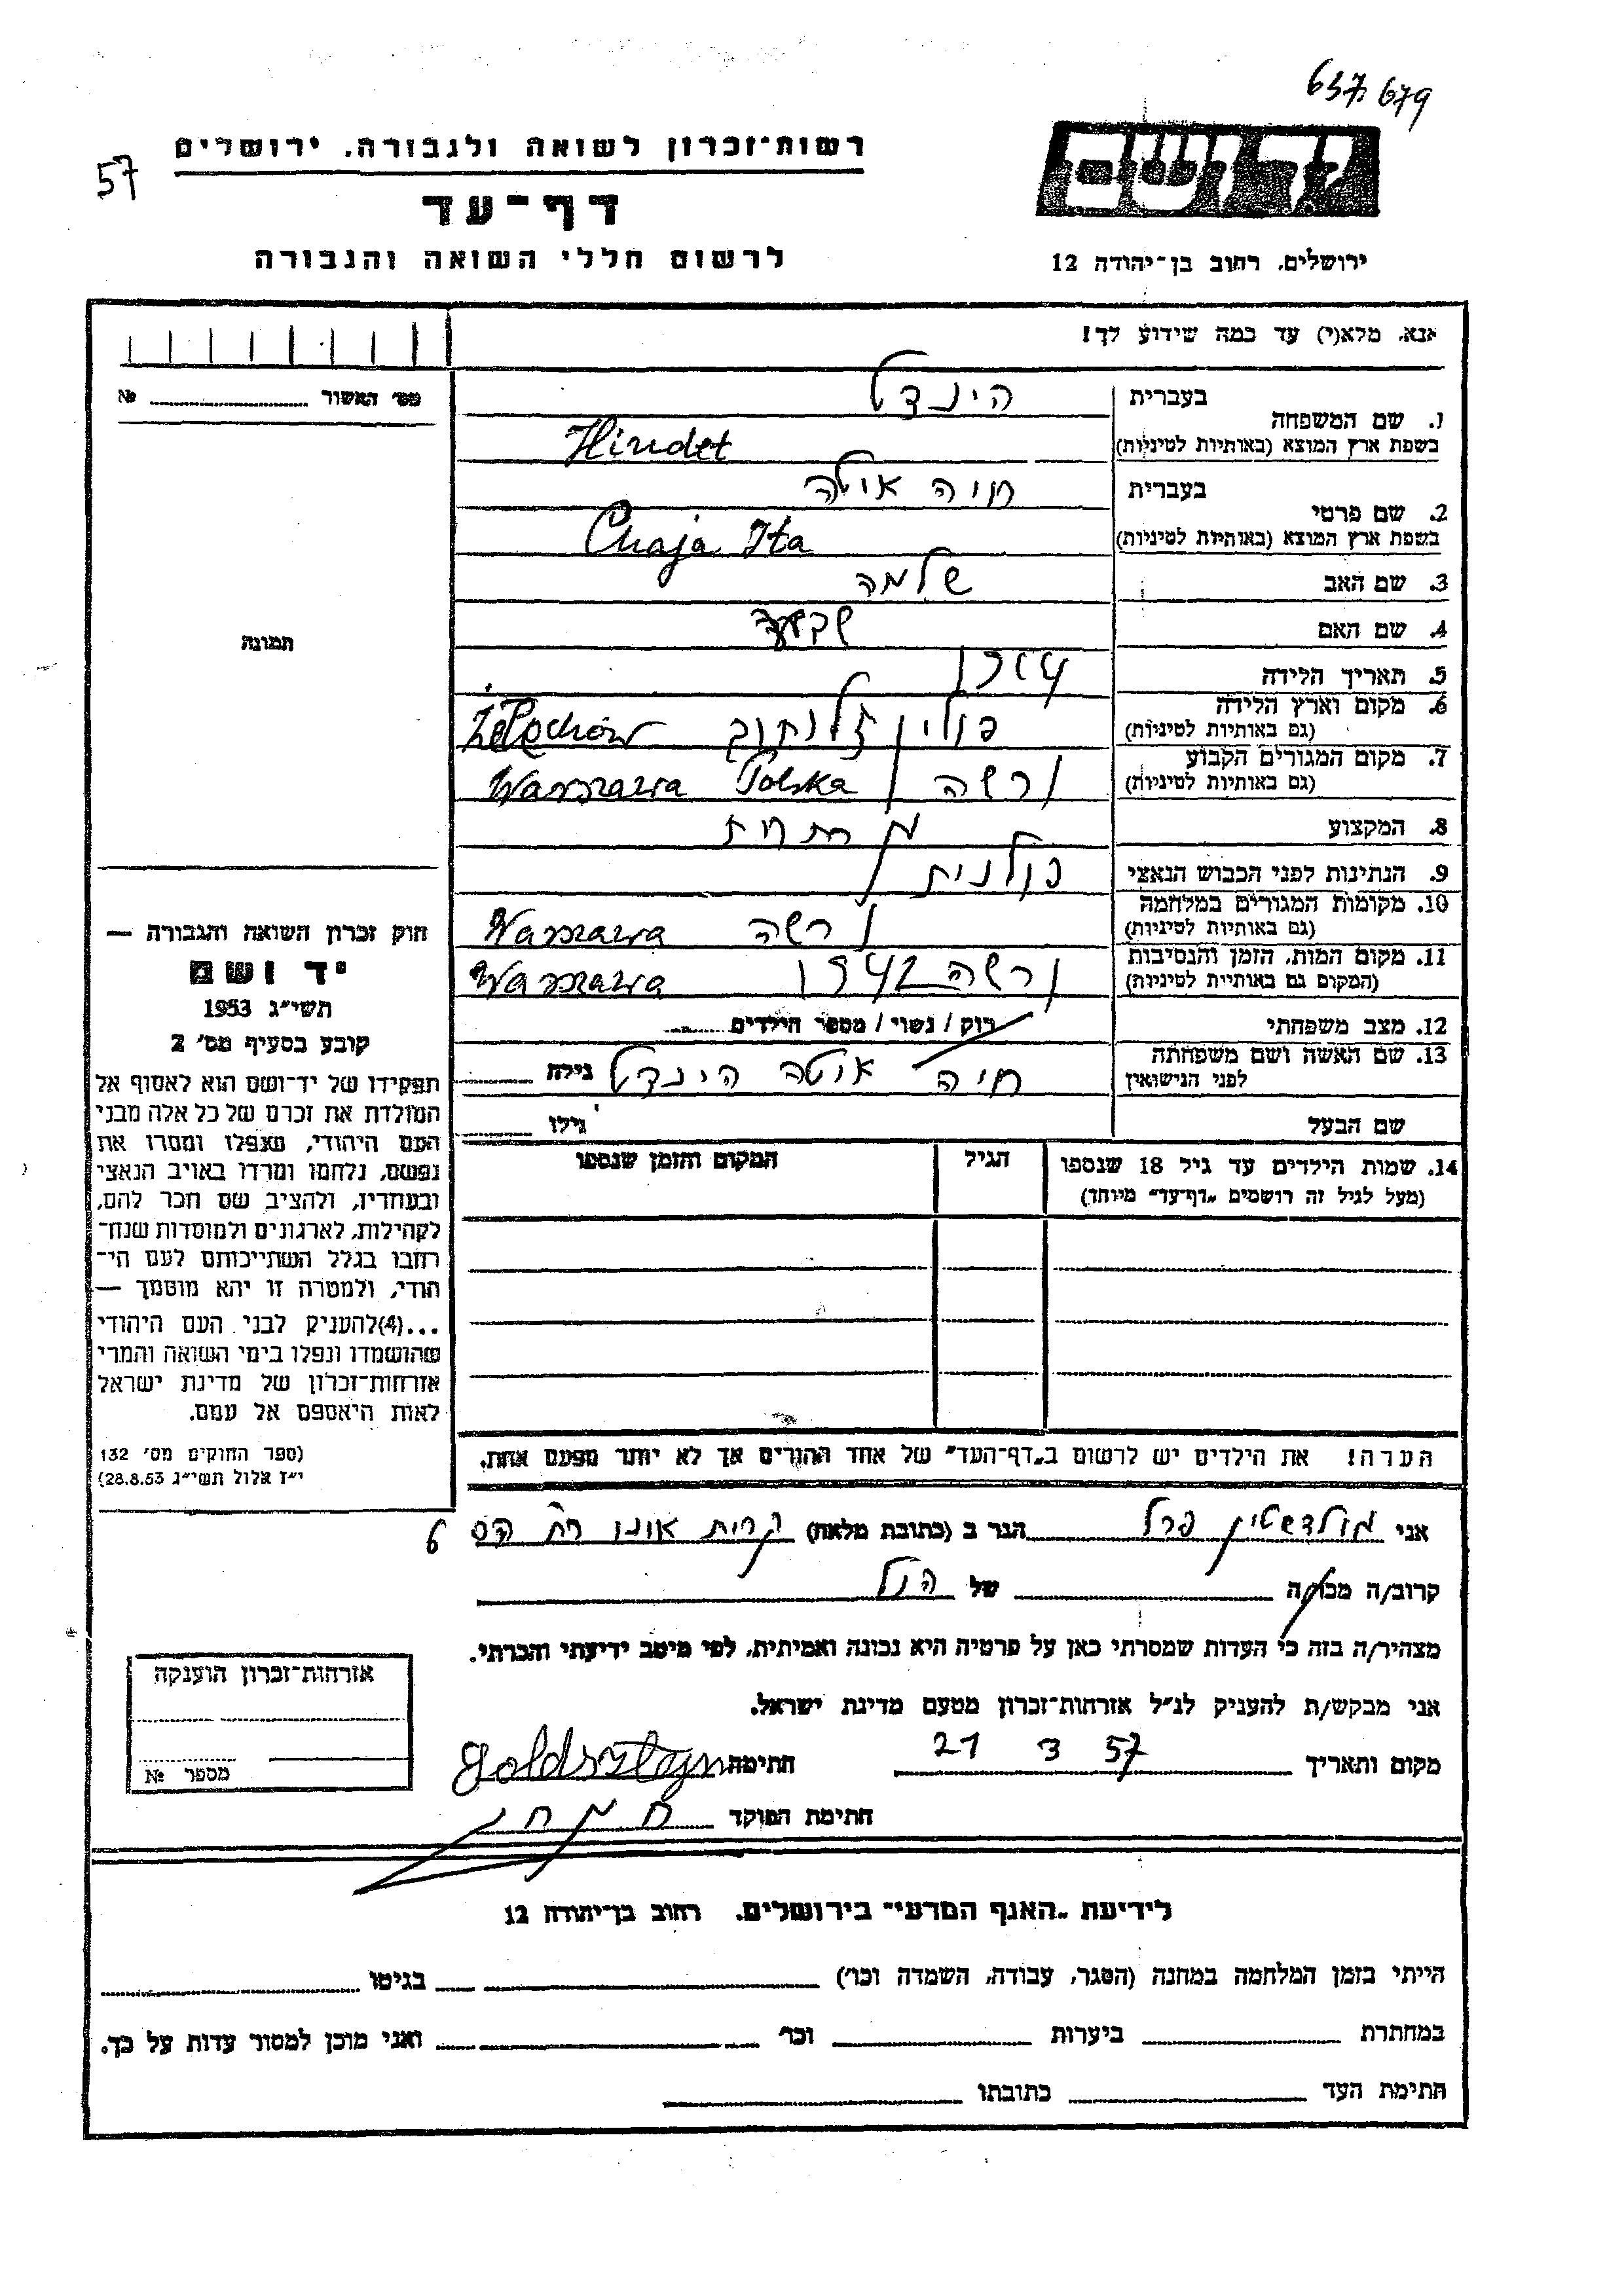 637 679
57
רשות־זכרון לשואה ולגבורה, ירושלים
דף־עד
לרשום חללי השואה והגבורה
ירושלים, רחוב בן־יהודה 12
אנא, מלא(י) עד כמה שידוע לך!
מס׳ האשור № ........
1. שם המשפחה
בעברית הינדט
בשפת ארץ המוצא (באותיות לטיניות) Hindet
2. שם פרטי
בעברית חיה איטה
בשפת ארץ המוצא (באותיות לטיניות) Chaja Ita
3. שם האב שלמה
4. שם האם
5. תאריך הלידה
6. מקום וארץ הלידה
(גם באותיות לטיניות) פולין זלוחוב Żelechów
7. מקום המגורים הקבוע
(גם באותיות לטיניות) ורשה Warszawa Polska
8. המקצוע
9. הנתינות לפני הכבוש הנאצי פולנית
10. מקומות המגורים במלחמה
(גם באותיות לטיניות) ורשה Warszawa
11. מקום המות, הזמן והנסיבות
(המקום גם באותיות לטיניות) ורשה 1942 Warszawa
12. מצב משפחתי רוק / נשוי / מספר הילדים ........
13. שם האשה ושם משפחתה
לפני הנישואין חיה איטה הינדט גילה ........
שם הבעל גילו ........
14. שמות הילדים עד גיל 18 שנספו
(מעל לגיל זה רושמים „דף־עד” מיוחד)
הגיל
המקום והזמן שנספו
הערה! את הילדים יש לרשום ב„דף־העד” של אחד ההורים אך לא יותר מפעם אחת.
תמונה
חוק זכרון השואה והגבורה —
יד ושם
תשי״ג 1953
קובע בסעיף מס׳ 2
תפקידו של יד־ושם הוא לאסוף אל
המולדת את זכרם של כל אלה מבני
העם היהודי, שנפלו ומסרו את
נפשם, נלחמו ומרדו באויב הנאצי
ובעוזריו, ולהציב שם וזכר להם,
לקהילות, לארגונים ולמוסדות שנח־
רבו בגלל השתייכותם לעם הי־
הודי, ולמטרה זו יהא מוסמך —
...(4)להעניק לבני העם היהודי
שהושמדו ונפלו בימי השואה והמרי
אזרחות־זכרון של מדינת ישראל
לאות היאספם אל עמם.
(ספר החוקים מס׳ 132
י״ז אלול תשי״ג 28.8.53)
אני גולדשטין פרל הגר ב (כתובת מלאה) קרית אונו רח 6
קרוב/ה מכר/ה ........ של הנל
מצהיר/ה בזה כי העדות שמסרתי כאן על פרטיה היא נכונה ואמיתית, לפי מיטב ידיעתי והכרתי.
אני מבקש/ת להעניק לנ״ל אזרחות־זכרון מטעם מדינת ישראל.
מקום ותאריך 21 3 57 חתימה Goldsztajn
חתימת הפוקד
אזרחות־זכרון הוענקה
מספר №
לידיעת „האגף המדעי” בירושלים, רחוב בן־יהודה 12
הייתי בזמן המלחמה במחנה (הסגר, עבודה, השמדה וכו׳) ........ בגיטו ........
במחתרת ........ ביערות ........ וכו׳ ........ ואני מוכן למסור עדות על כך.
חתימת העד ........ כתובתו ........